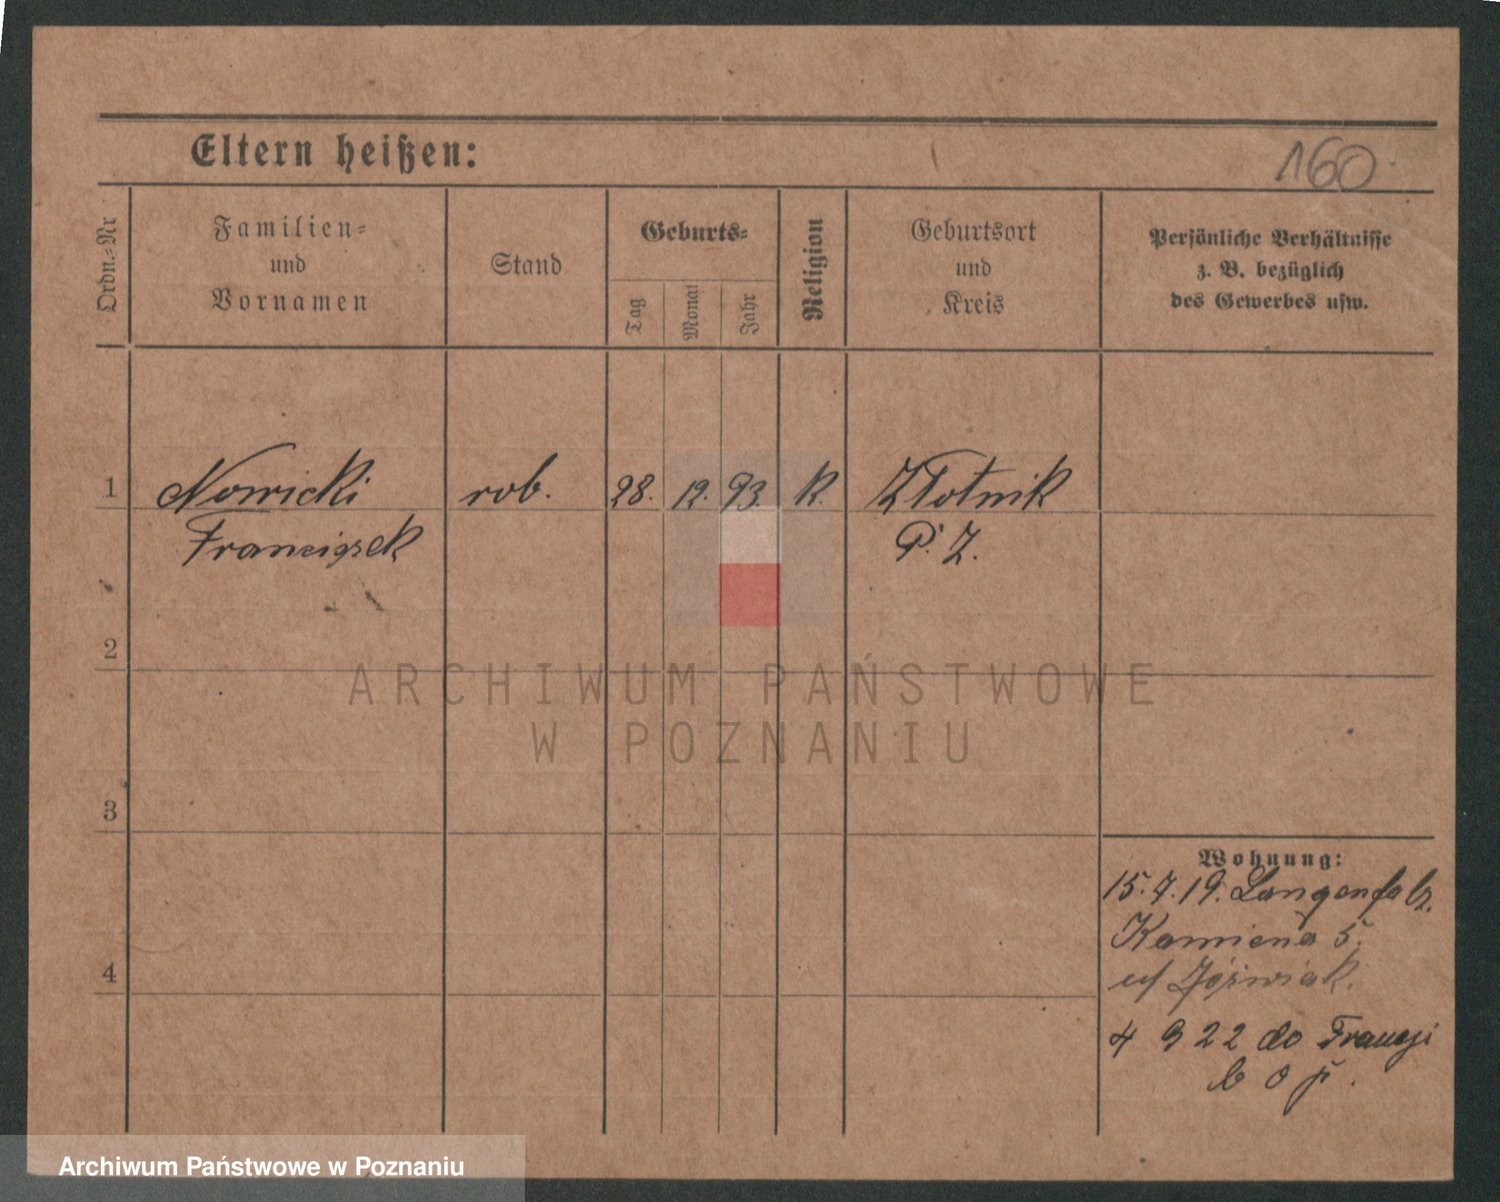 Eltern heißen:
160.
Ordn.-Nr
Familien-
und
Vornamen
Stand
Geburts-
Tag
Monat
Jahr
Religion
Geburtsort
und
Kreis
Persönliche Verhältnisse
z. B. bezüglich
des Gewerbes usw.
1 Nowicki rob. 28. 12. 93. k. Złotnik
Franciszek P. Z.
2
ARCHIWUM PAŃSTWOWE
W POZNANIU
3
Wohnung:
15. 7. 19.
Kamiena 5.
u/ Jóźwiak.
4
4 9 22 do Francji
b o p.
Archiwum Państwowe w Poznaniu